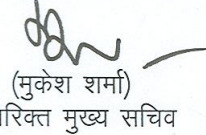 (मुकेश शर्मा)
रिक्त मुख्य सचिव